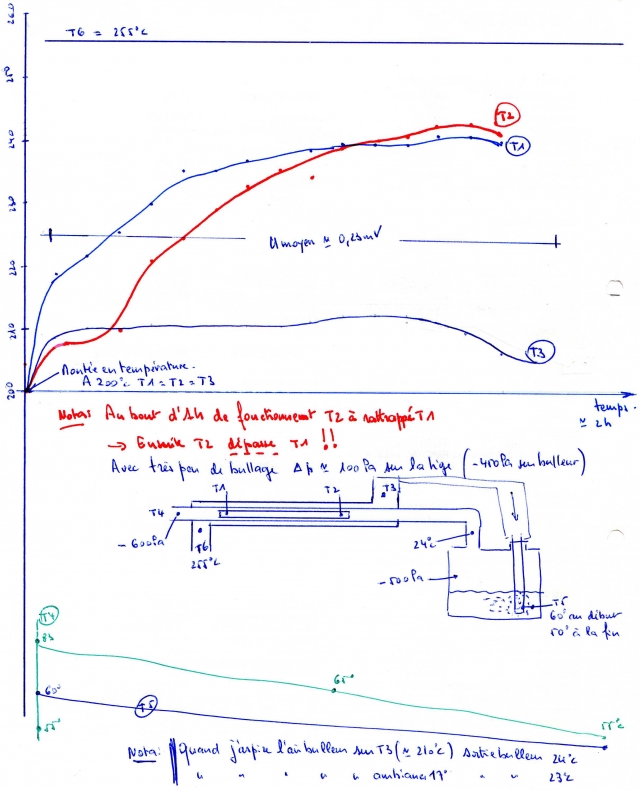 T6 = 255°c
T2
T1
U moyen ≃ 0,23mV
T3
Montée en température.
A 200°c T1 = T2 = T3
200
210
220
temps.
≃ 2h
Nota: Au bout d'1h de fonctionnement T2 à rattrappé T1
→ Ensuite T2 dépasse T1 !!
Avec très peu de bullage Δp ≃ 100Pa sur la tige (-450Pa sur bulleur)
T1 T2 T3
T4
-600Pa
T6
255°c
24°c
-500Pa
T5
60° au début
50° à la fin
T4
83
65°
60°
T5
55°
55°c
Nota: Quand j'aspire l'air bulleur sur T3 (≃ 210°c) sortie bulleur 24°c
" " " " " ambiance 17° " " 23°c